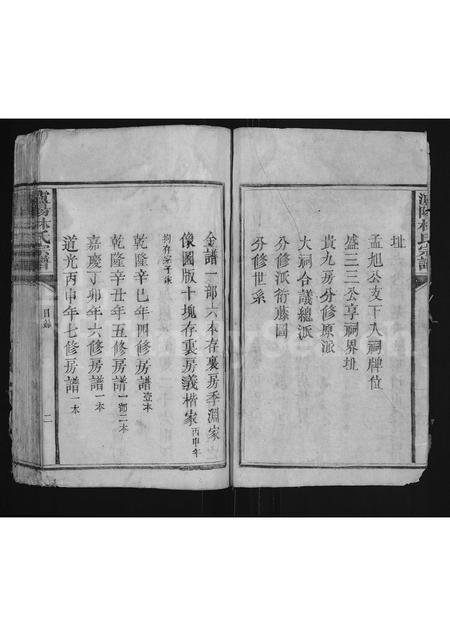 址
孟旭公支下入祠牌位
盛三三公享祠界址
貴九房分修原派
大祠合議總派
分修派衍藤圖
分修世系
全譜一部六本存裏房季淵家
像圖版十塊存裏房義楷家丙申年
乾隆辛巳年四修房譜壹本
乾隆辛丑年五修房譜一部二本
嘉慶丁卯年六修房譜一本
道光丙申年七修房譜一本
目錄
二
林氏宗譜
林氏宗譜